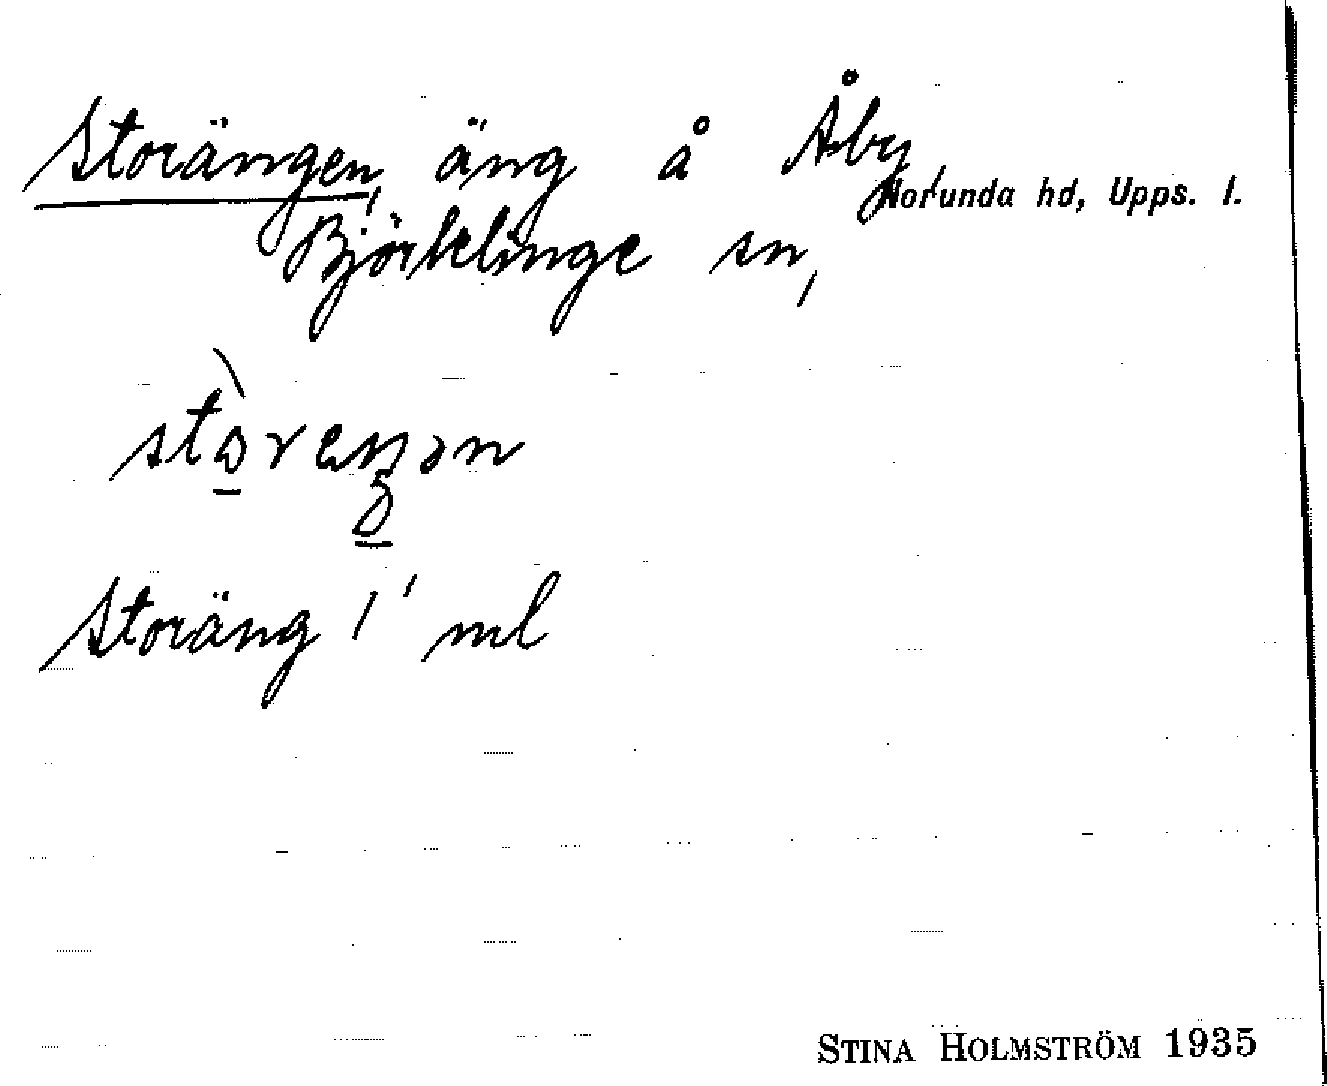 Storängen, äng å Åby,
Norunda hd, Upps. l.
Björklinge sn,
Storäng 1' ml
STINA HOLMSTRÖM 1935